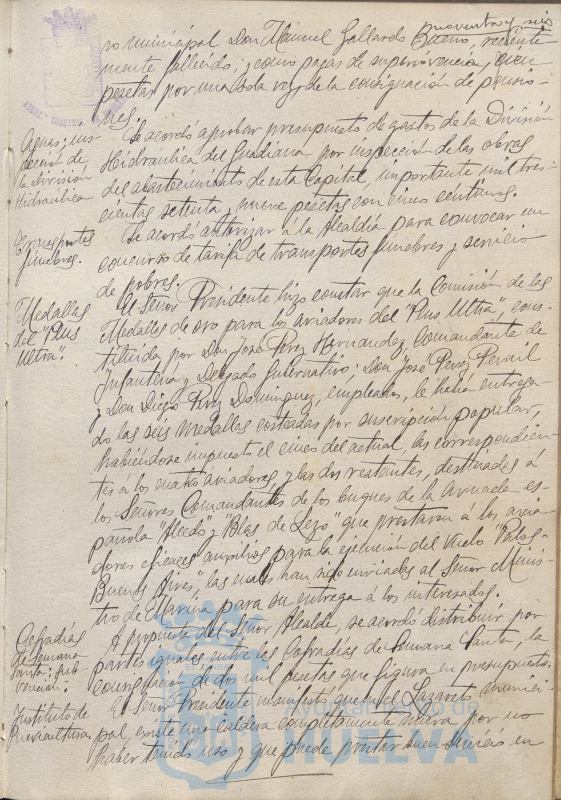 noventa y seis
ro municipal Don Manuel Gallardo Bueno, reciente-
mente fallecido; y como pagas de supervivencia, cien
pesetas por una sola vez de la consignación de pensio-
nes.
Aguas; ins-
pección de
la División
Hidraulica
Se acordó aprobar presupuesto de gastos de la División
Hidraulica del Guadiana por inspección de las obras
del abastecimiento de esta Capital, importante mil tres-
cientas setenta y nueve pesetas con cinco centimos.
Transportes
fúnebres.
Se acordó autorizar á la Alcaldía para convocar un
concurso de tarifa de transportes fúnebres y servicio
de pobres.
Medallas
del "Plus
Ultra".
El Señor Presidente hizo constar que la Comisión de las
Medallas de oro para los aviadores del "Plus Ultra", cons-
tituida por Don José Perez Hernandez, Comandante de
Infantería y Delegado Gubernativo; Don José Perez
y Don Diego Perez Dominguez, empleados, le había entrega-
do las seis medallas costeadas por suscripción popular,
habiéndose impuesto el cinco del actual, las correspondien-
tes á los cuatro aviadores y las dos restantes, destinadas á
los Señores Comandantes de los buques de la Armada es-
pañola "Alsedo" y "Blas de Lezo" que prestaron á los avia-
dores eficaces auxilios para la ejecución del vuelo "Palos-
Buenos Aires", las cuales han sido enviadas al Señor Minis-
tro de Marina para su entrega á los interesados.
Cofradías
de Semana
Santa; sub-
vención.
A propuesta del Señor Alcalde, se acordó distribuir por
partes iguales entre las Cofradías de Semana Santa, la
consignación de dos mil pesetas que figura en presupuesto.
Instituto de
Puericultura
El Señor Presidente manifestó que en el Lazareto munici-
pal, existe una caldera completamente nueva por no
haber tenido uso y que puede prestar buen servicio en
Ayuntamiento de
HUELVA